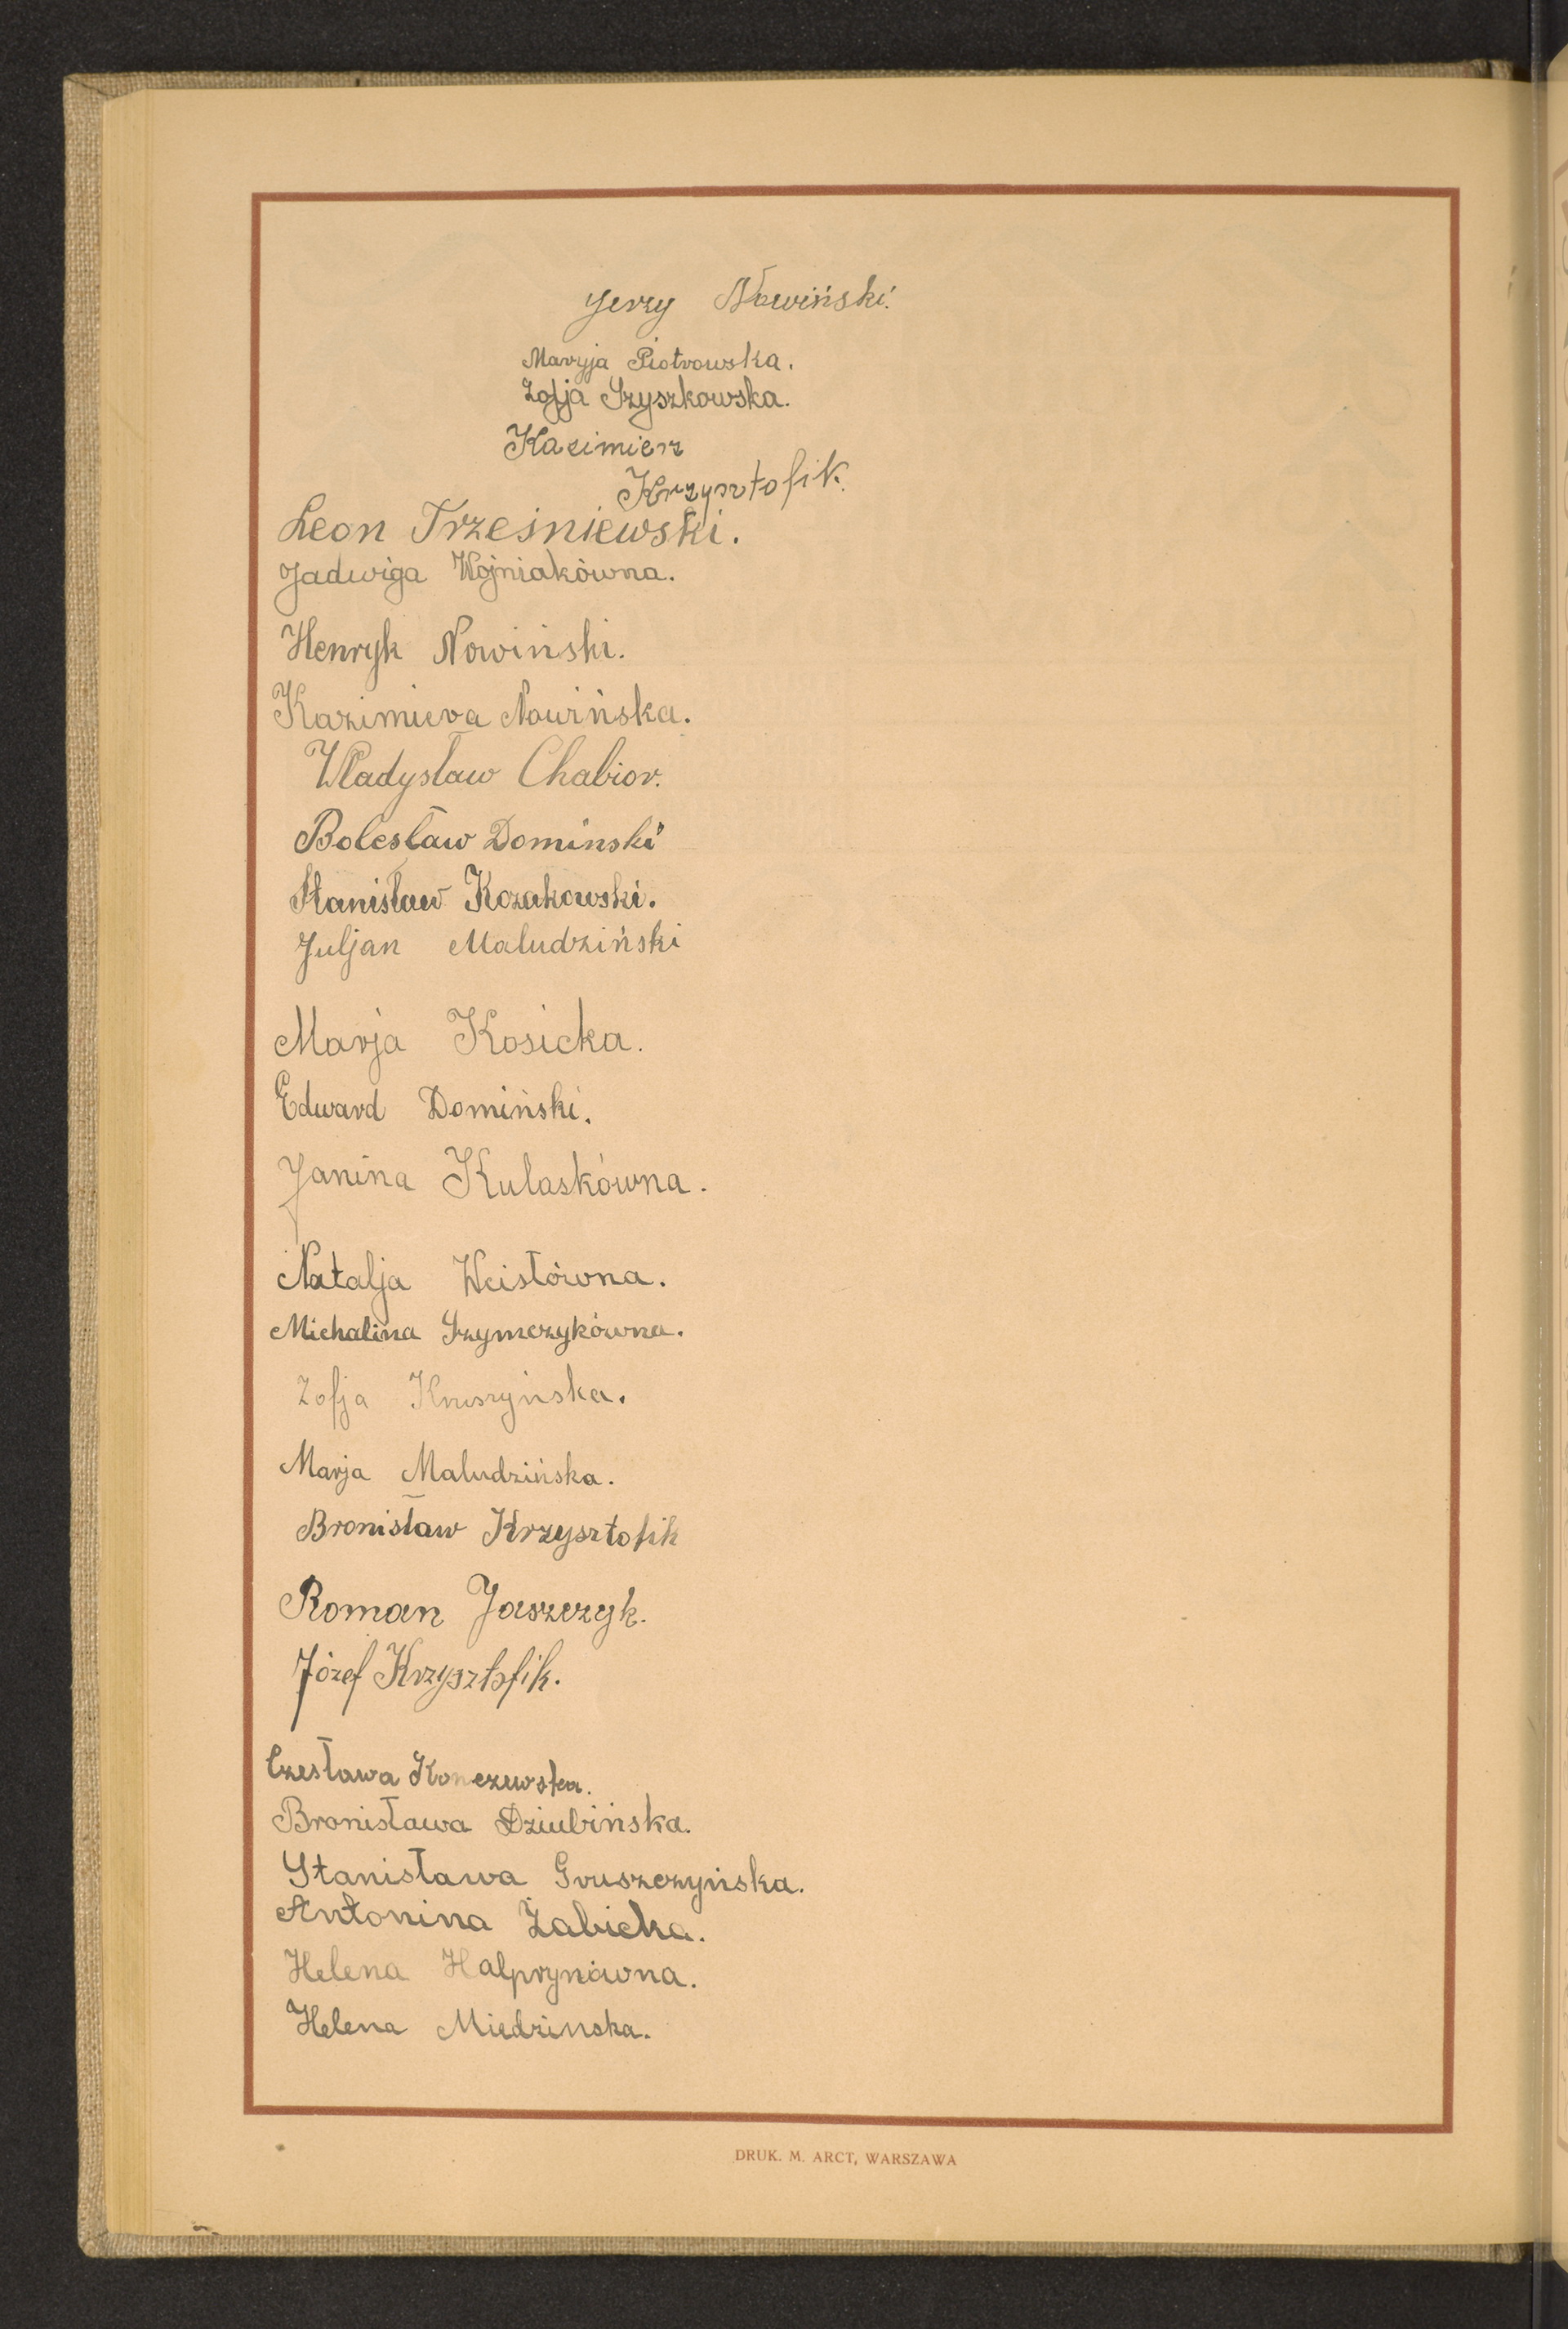 Jerzy Nowiński.
Maryja Piotrowska.
Zofja Szyszkowska.
Kazimierz
Krzysztofik.
Leon Trześniewski.
Jadwiga Wójniakówna.
Henryk Nowiński.
Kazimiera Nowińska.
Władysław Chabior.
Bolesław Domiński
Stanisław Kozakowski.
Juljan Maludziński
Marja Kosicka.
Edward Domiński.
Janina Kulaskówna.
Natalja Weisłówna.
Michalina Szymczykówna.
Zofja Kruszyńska.
Marja Maludzińska.
Bronisław Krzysztofik
Roman Jaszczyk.
Józef Krzysztofik.
Czesława Konczewska.
Bronisława Dziubińska.
Stanisława Gruszczyńska.
Antonina Żabicka.
Helena Halprynówna.
Helena Miedzinska.
DRUK. M. ARCT, WARSZAWA